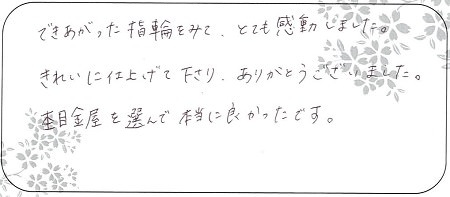 できあがった指輪をみて、とても感動しました。
きれいに仕上げて下さり、ありがとうございました。
杢目金屋を選んで本当に良かったです。